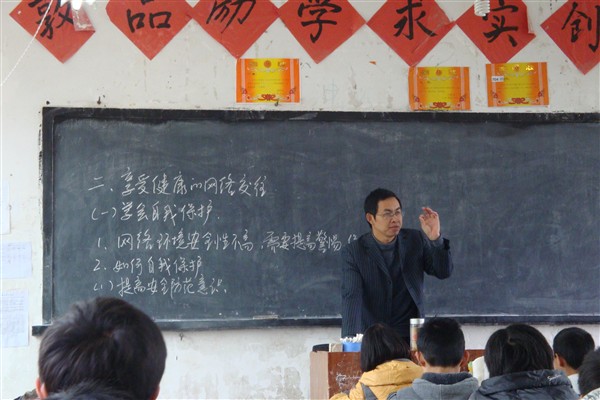 敦品励学求实创
二、享受健康的网络交往
(一)学会自我保护.
1、网络环境安全性不高,需要提高警惕
2、如何自我保护
(1)提高安全防范意识。